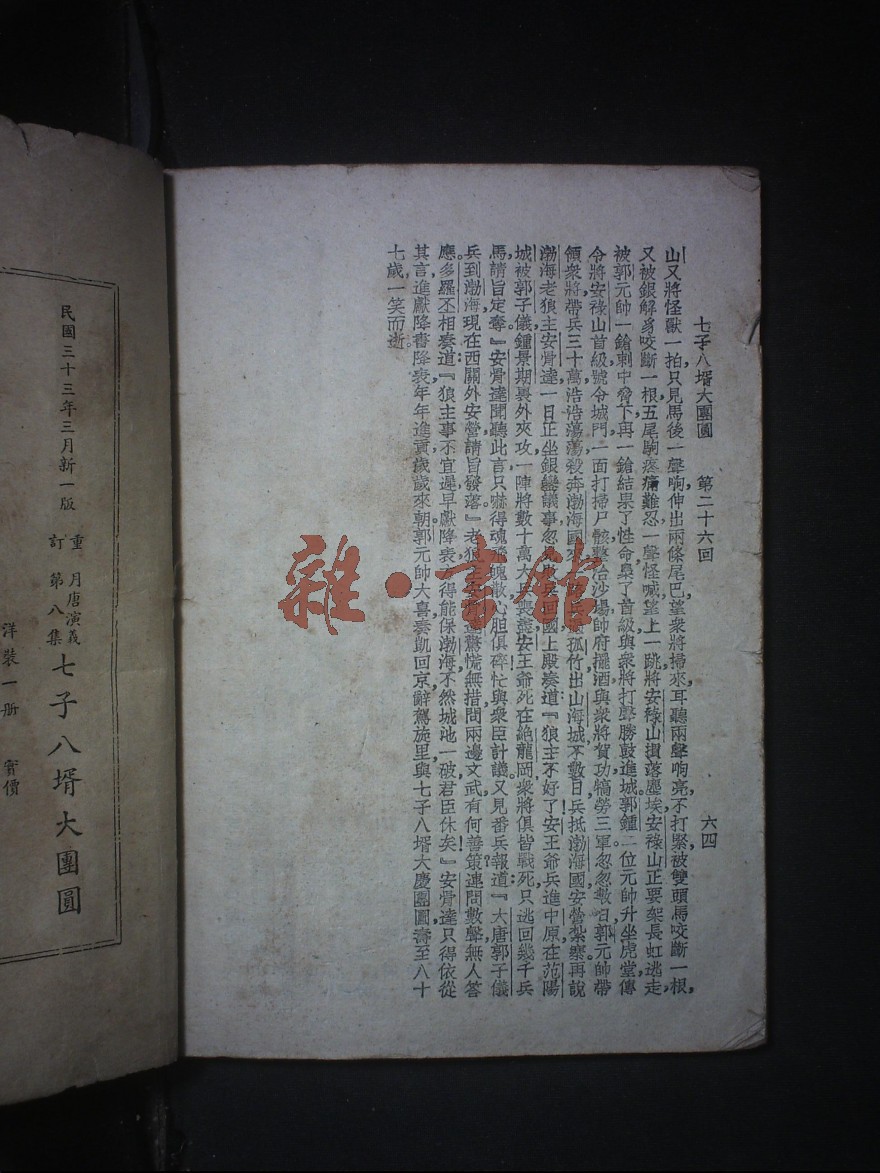 七子八壻大團圓　第二十六回　六四
山又將怪獸一拍只見馬後一聲响伸出兩條尾巴望衆將掃來耳聽兩聲响亮不打緊被雙頭馬咬斷一根
又被銀解豸咬斷一根五尾駒疼痛難忍一聲怪喊望上一跳將安祿山摜落塵埃安祿山正要架長虹逃走
被郭元帥一鎗刺中脅下再一鎗結果了性命梟了首級與衆將打得勝鼓進城郭鍾二位元帥升坐虎堂傳
令將安祿山首級號令城門一面打掃尸骸整治沙場帥府擺酒與衆將賀功犒勞三軍忽忽數日郭元帥帶
領衆將帶兵三十萬浩浩蕩蕩殺奔渤海國來孤竹出山海城不數日兵抵渤海國安營紮寨再說
渤海老狼主安骨達一日正坐銀鑾議事忽見回國上殿湊道『狼主不好了安王爺兵進中原在范陽
城被郭子儀鍾景期裏外夾攻一陣將數十萬大兵喪盡安王爺死在絶龍岡衆將俱皆戰死只逃回幾千兵
馬請旨定奪』安骨達聞聽此言只嚇得魂飛魄散心胆俱碎忙與衆臣計議又見番兵報道『大唐郭子儀
兵到渤海現在西關外安營請旨發落』老狼主安骨達驚慌無措問兩邊文武有何善策連問數聲無人答
應多羅丕相奏道『狼主事不宜遲早獻降表得能保渤海不然城池一破君臣休矣』安骨達只得依從
其言進獻降書降表年年進貢歲歲來朝郭元帥大喜奏凱回京辭駕旋里與七子八壻大慶團圓壽至八十
七歲一笑而逝
民國三十三年三月新一版
重訂
月唐演義第八集
七子八壻大團圓
洋裝一册　實價
雜·書館